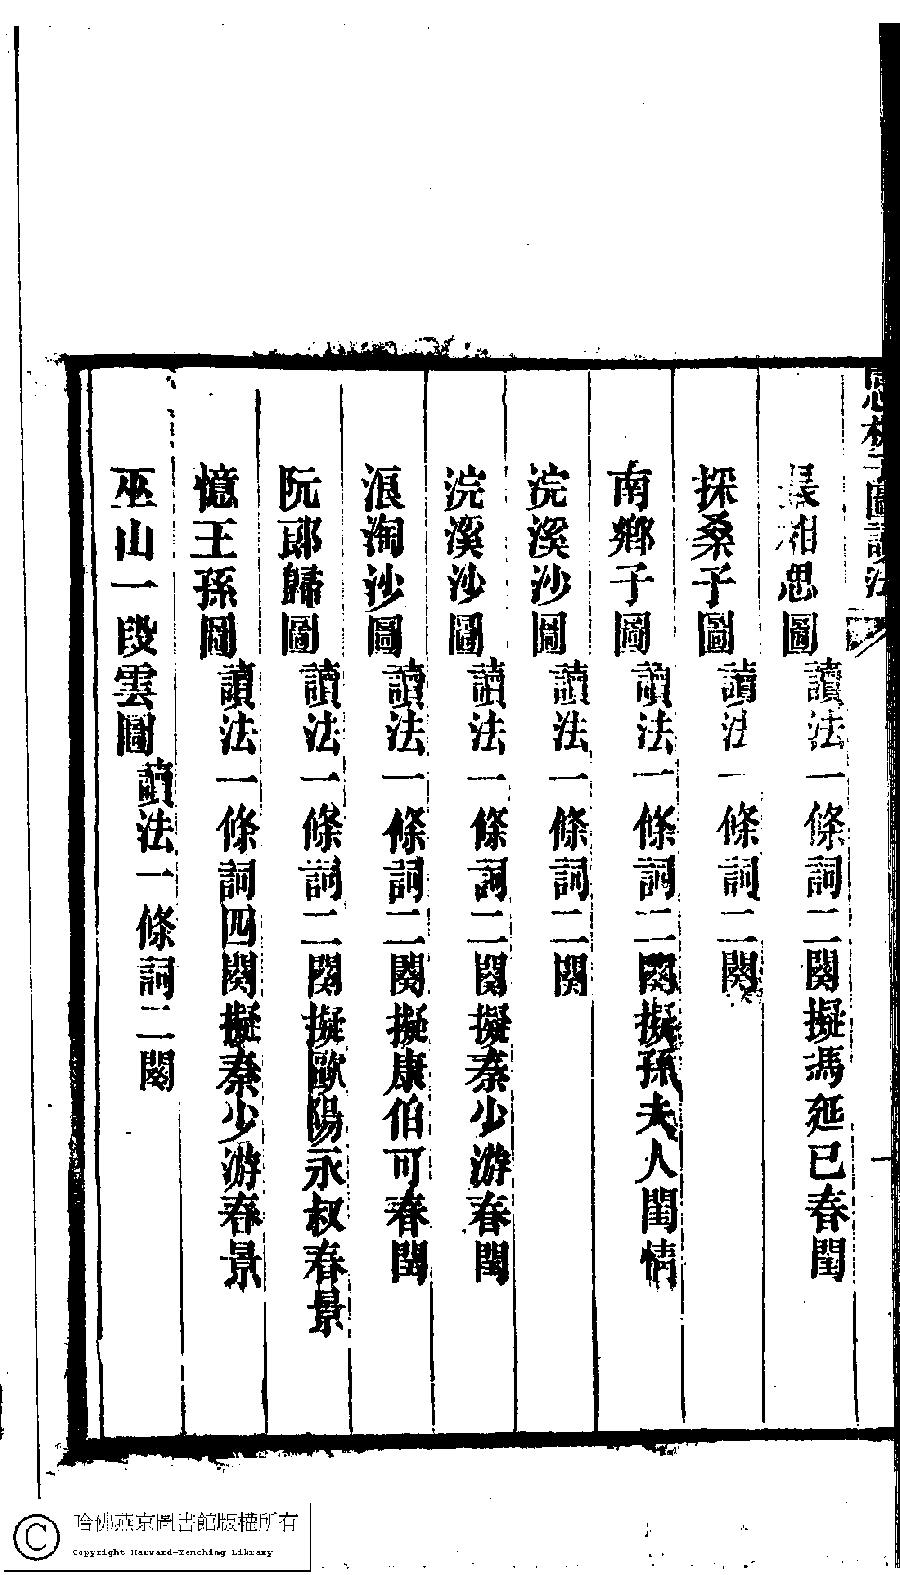 圖讀法
長相思圖讀法一條詞二闋擬馮延巳春閨
採桑子圖讀法一條詞二闋
南鄉子圖讀法一條詞二闋擬孫夫人閨情
浣溪沙圖讀法一條詞二闋
浣溪沙圖讀法一條詞二闋擬秦少游春閨
浪淘沙圖讀法一條詞二闋擬康伯可春閨
阮郎歸圖讀法一條詞二闋擬歐陽永叔春景
憶王孫圖讀法一條詞四闋擬秦少游春景
巫山一段雲圖讀法一條詞二闋
哈佛燕京圖書館版權所有
Copyright Harvard-Yenching Library